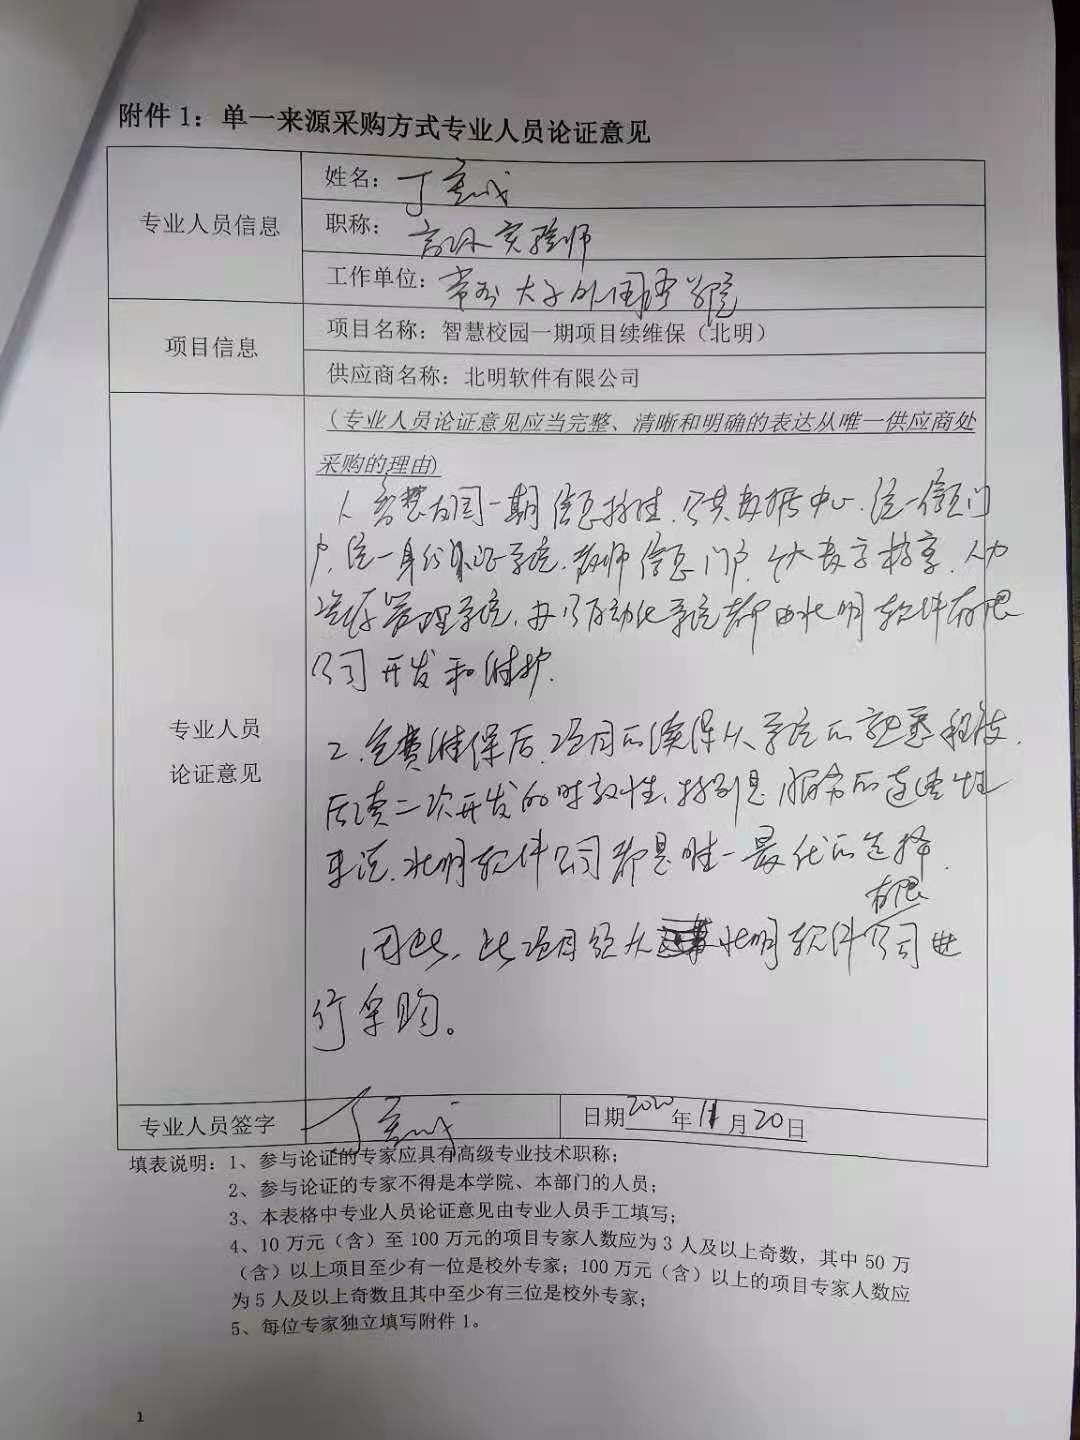 附件 1：单一来源采购方式专业人员论证意见
专业人员信息
姓名：丁
职称：高级实验师
工作单位：常州大学外国语学院
项目信息
项目名称：智慧校园一期项目续维保（北明）
供应商名称：北明软件有限公司
专业人员
论证意见
（专业人员论证意见应当完整、清晰和明确的表达从唯一供应商处
采购的理由）
1、智慧校园一期信息标准、公共数据中心、统一信息门
户、统一身份认证系统、教师信息门户、个人数字档案、人力
资源管理系统、办公自动化系统都由北明软件有限
公司开发和维护.
2、免费维保后，项目的续保从系统的熟悉程度、
后续二次开发的时效性、特别是服务的连续性
来说，北明软件公司都是唯一最优的选择.
因此，此项目须从北明软件有限公司进
行采购。
专业人员签字 丁
日期2020年11月20日
填表说明：1、参与论证的专家应具有高级专业技术职称；
2、参与论证的专家不得是本学院、本部门的人员；
3、本表格中专业人员论证意见由专业人员手工填写；
4、10 万元（含）至 100 万元的项目专家人数应为 3 人及以上奇数，其中 50 万
（含）以上项目至少有一位是校外专家；100 万元（含）以上的项目专家人数应
为 5 人及以上奇数且其中至少有三位是校外专家；
5、每位专家独立填写附件 1。
1